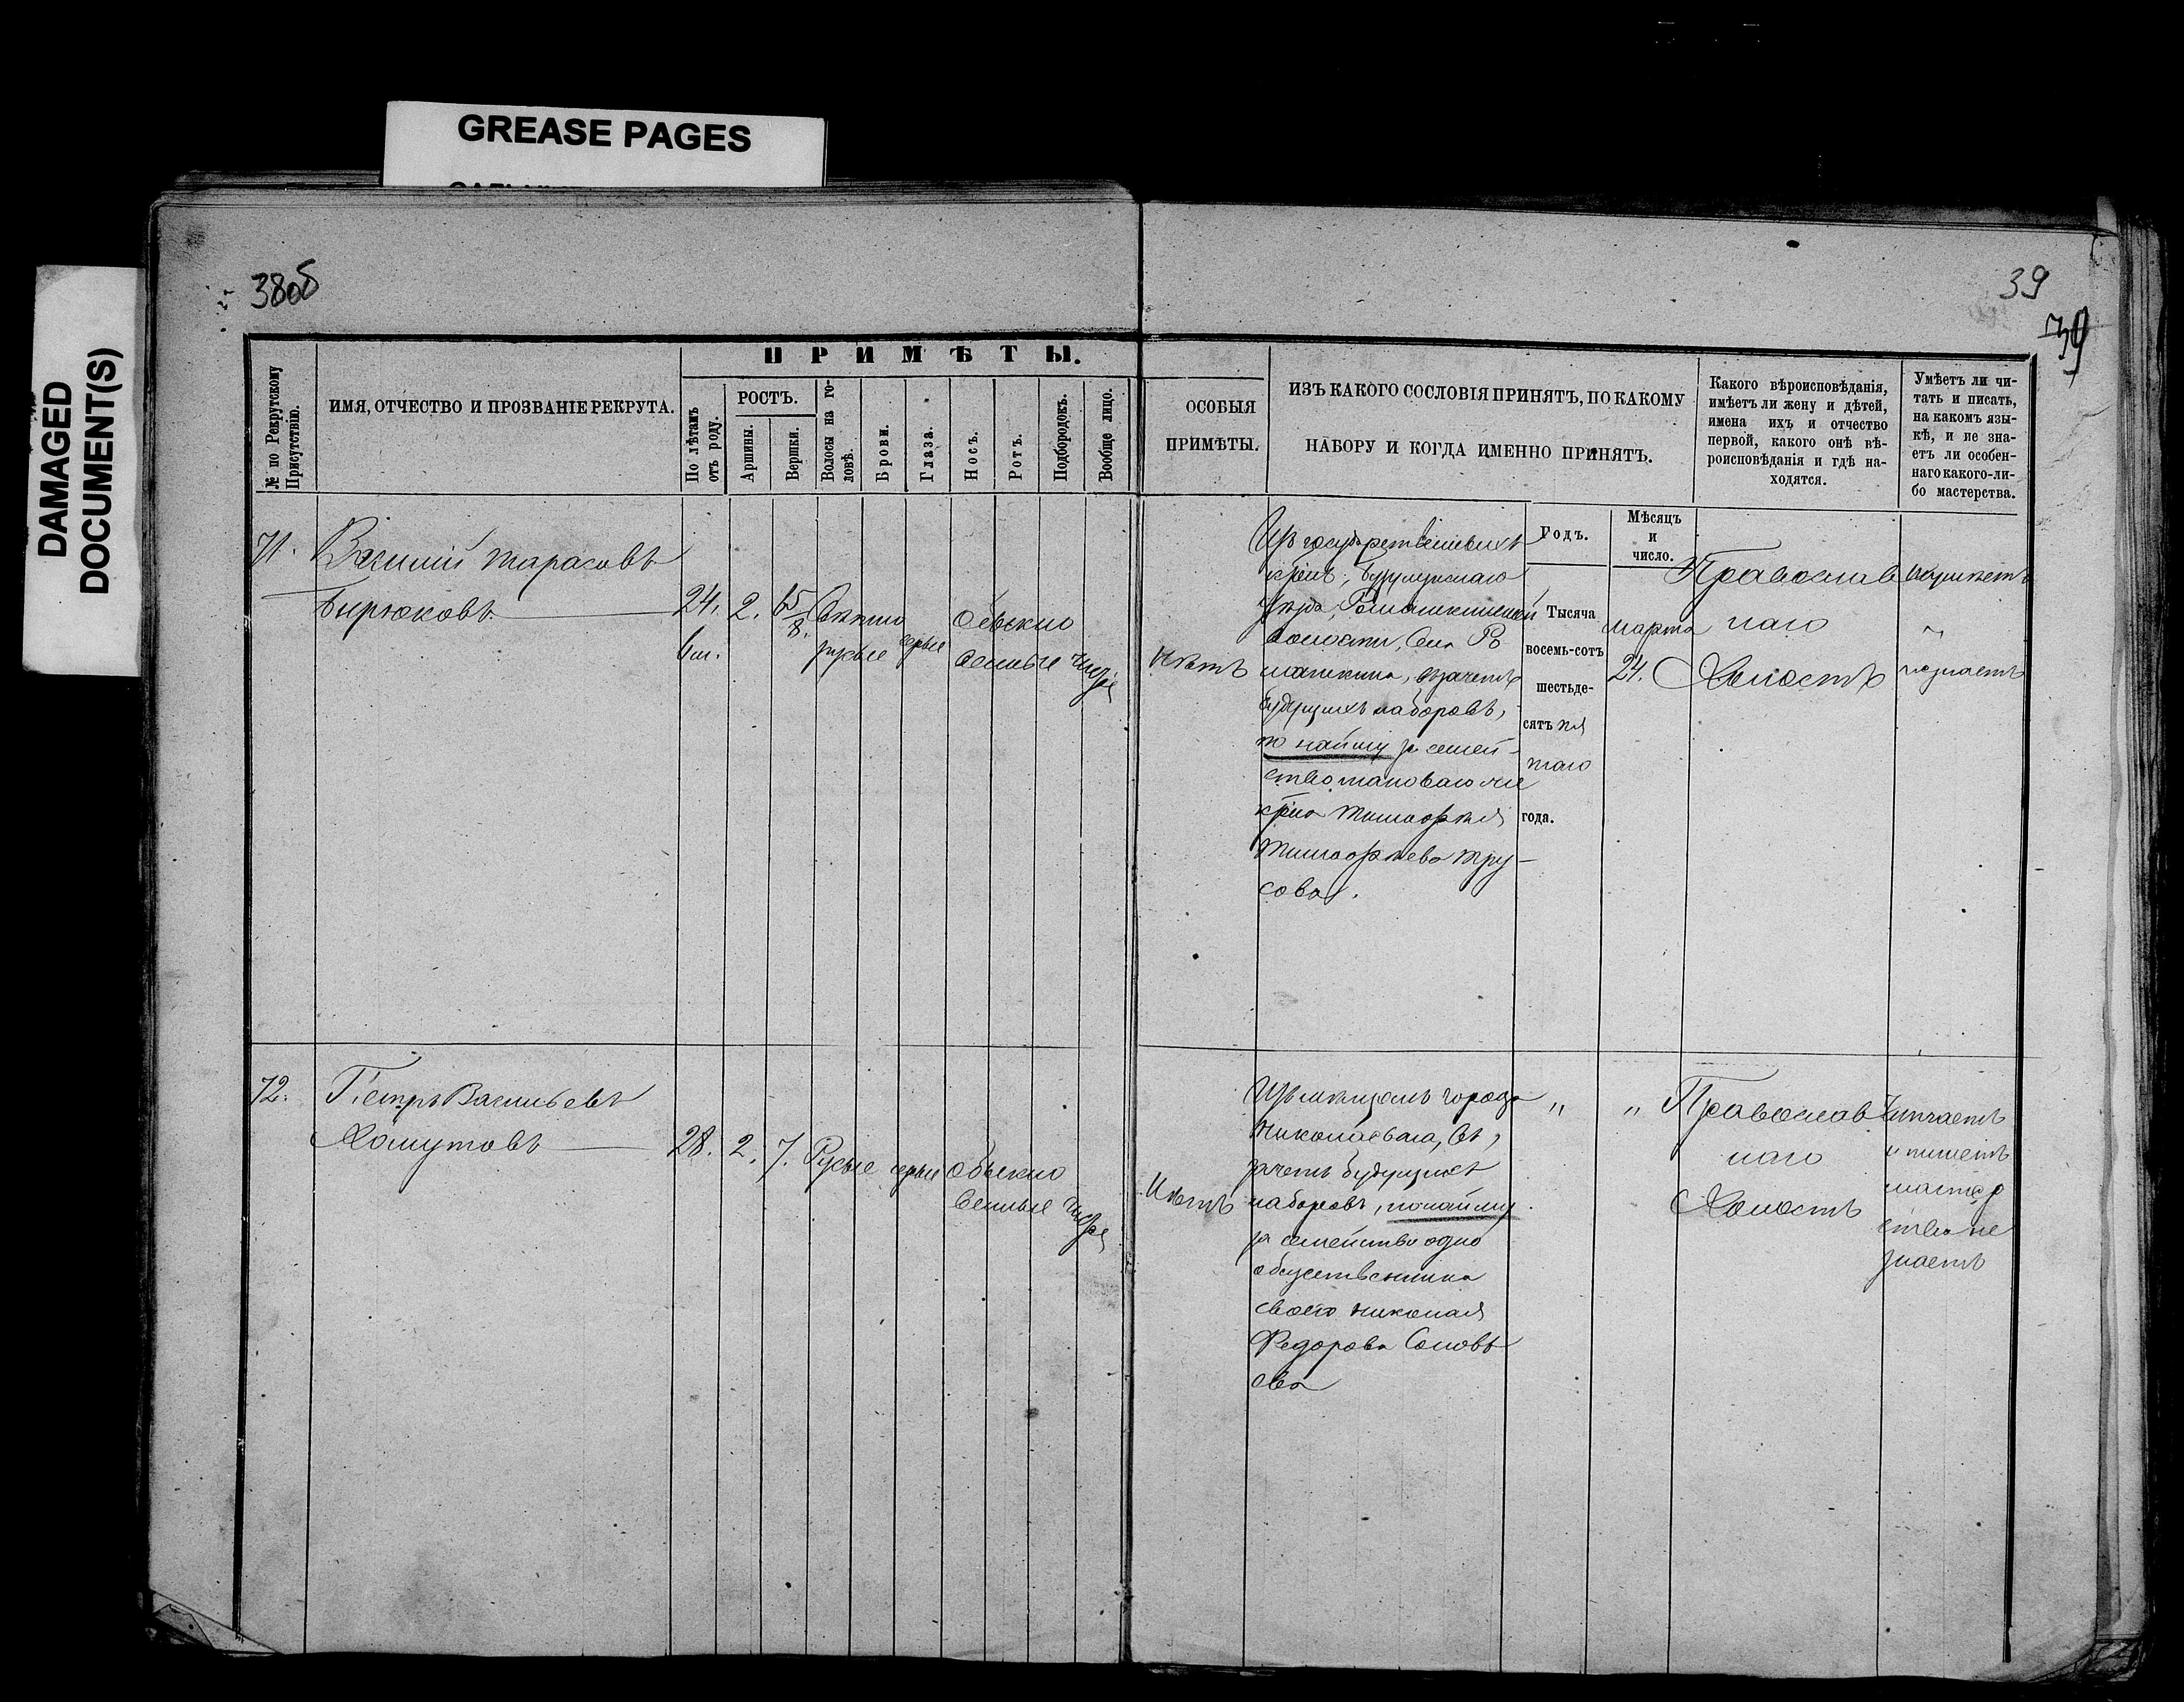 GREASE PAGES
DAMAGED
DOCUMENT(S)
38об
39
39
ПРИМѢТЫ.
№ по Рекрутскому
Присутствію.
ИМЯ, ОТЧЕСТВО И ПРОЗВАНІЕ РЕКРУТА.
По лѣтамъ
отъ роду.
РОСТЪ.
Аршины.
Вершки.
Волосы на го-
ловѣ.
Брови.
Глаза.
Носъ.
Ротъ.
Подбородокъ.
Вообще лицо.
ОСОБЫЯ
ПРИМѢТЫ.
ИЗЪ КАКОГО СОСЛОВІЯ ПРИНЯТЪ, ПО КАКОМУ
НАБОРУ И КОГДА ИМЕННО ПРИНЯТЪ.
Какого вѣроисповѣданія,
имѣетъ ли жену и дѣтей,
имена ихъ и отчество
первой, какого онѣ вѣ-
роисповѣданія и гдѣ на-
ходятся.
Умѣетъ ли чи-
тать и писать,
на какомъ язы-
кѣ, и не зна-
етъ ли особен-
наго какого-ли-
бо мастерства.
71.
Василій Тарасовъ
Бирюковъ.
24.
2.
6 5/8.
Свѣтло
русые
серые
Обыкно
венные
чистое
Нѣтъ
Изъ государственныхъ
крест.; Бузулукскаго
Уѣзда, Ромашкинской
волости, Села Ро
машкина, въ зачетъ
будущихъ наборовъ,
по найму за семей-
ство таковаго же
крна Тимофея
Тимофеева Тру-
сова.
Годъ.
Тысяча
восемь-сотъ
шестьде-
сятъ пя
таго
года.
Мѣсяцъ
и
число.
Марта
24.
Православ
наго
Холостъ
Неумѣетъ
незнаетъ
72.
Петръ Васильевъ
Хомутовъ
28.
2.
7.
Русые
серые
Обыкно
венные
чистое
Нѣтъ
Изъ мѣщанъ города
Николаевска, въ
зачетъ будущихъ
наборовъ, по найму
за семейство одно
общественника
своего Николая
Федорова Соловь
ева
"
"
Православ
наго
Холостъ
Читаетъ
и пишетъ
мастер
ства не
знаетъ